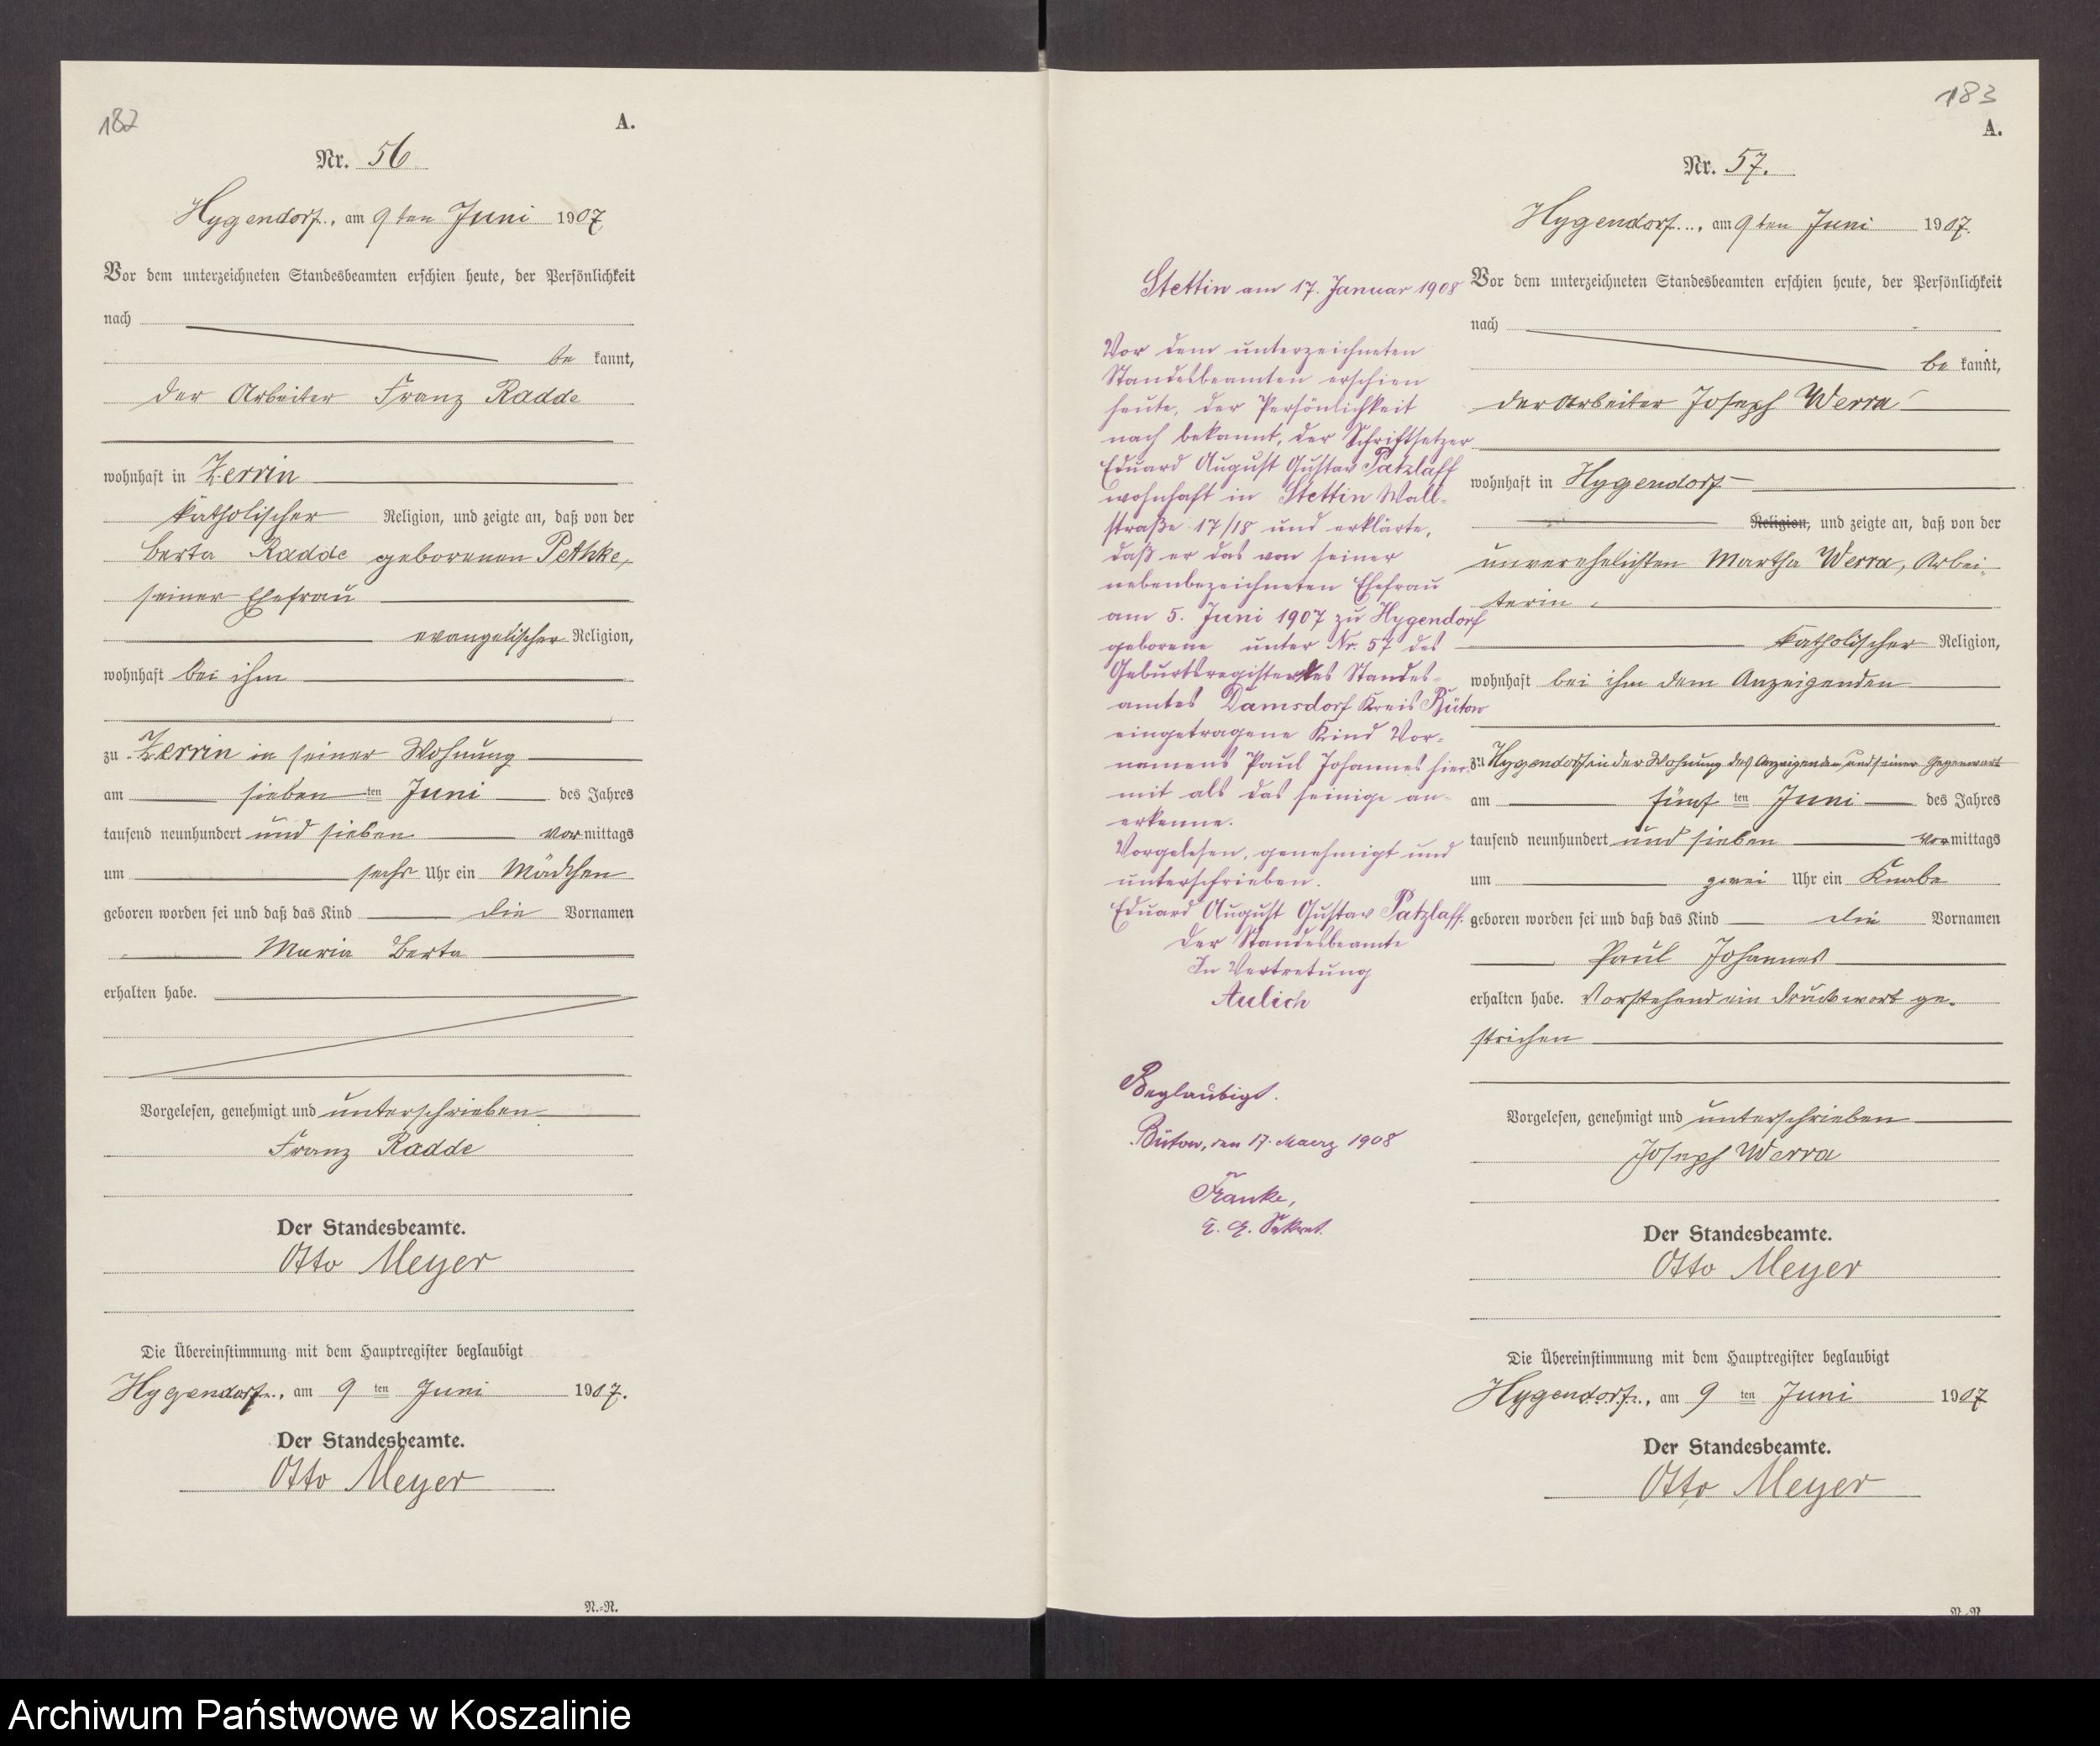 182
A.
Nr. 56
Hygendorf, am 9ten Juni 1907
Vor dem unterzeichneten Standesbeamten erschien heute, der Persönlichkeit
nach
be kannt,
der Arbeiter Franz Radde
wohnhaft in Zerrin
katholischer Religion, und zeigte an, daß von der
Berta Radde geborenen Pethke,
seiner Ehefrau
evangelischer Religion,
wohnhaft bei ihm
zu Zerrin in seiner Wohnung
am sieben ten Juni des Jahres
tausend neunhundert und sieben vormittags
um sechs Uhr ein Mädchen
geboren worden sei und daß das Kind die Vornamen
Maria Berta
erhalten habe.
Vorgelesen, genehmigt und unterschrieben
Franz Radde
Der Standesbeamte.
Otto Meyer
Die Übereinstimmung mit dem Hauptregister beglaubigt
Hygendorf, am 9 ten Juni 1907.
Der Standesbeamte.
Otto Meyer
N.-N.
Stettin am 17. Januar 1908
Vor dem unterzeichneten
Standesbeamten erschien
heute, der Persönlichkeit
nach bekannt, der Schriftsetzer
Eduard August Gustav Patzlaff
wohnhaft in Stettin Wall-
straße 17/18 und erklärte,
daß er das von seiner
nebenbezeichneten Ehefrau
am 5. Juni 1907 zu Hygendorf
geborene unter Nr. 57 des
Geburtsregister des Standes-
amtes Damsdorf Kreis Bütow
eingetragene Kind Vor-
namens Paul Johannes hier-
mit als das seinige an-
erkenne.
Vorgelesen, genehmigt und
unterschrieben.
Eduard August Gustav Patzlaff.
Der Standesbeamte
In Vertretung
Aulich
Beglaubigt.
Bütow, den 17. Maerz 1908
Franke,
183
A.
Nr. 57.
Hygendorf, am 9ten Juni 1907.
Vor dem unterzeichneten Standesbeamten erschien heute, der Persönlichkeit
nach
be kannt,
der Arbeiter Joseph Werra
wohnhaft in Hygendorf
Religion, und zeigte an, daß von der
unverehelichten Martha Werra, Arbei-
terin
katholischer Religion,
wohnhaft bei ihm dem Anzeigenden
zu Hygendorf in der Wohnung des Anzeigenden und seiner Gegenwart
am fünf ten Juni des Jahres
tausend neunhundert und sieben vormittags
um zwei Uhr ein Knabe
geboren worden sei und daß das Kind die Vornamen
Paul Johannes
erhalten habe. Vorstehend ein Druckwort ge-
strichen
Vorgelesen, genehmigt und unterschrieben
Joseph Werra
Der Standesbeamte.
Otto Meyer
Die Übereinstimmung mit dem Hauptregister beglaubigt
Hygendorf, am 9 ten Juni 1907
Der Standesbeamte.
Otto Meyer
Archiwum Państwowe w Koszalinie